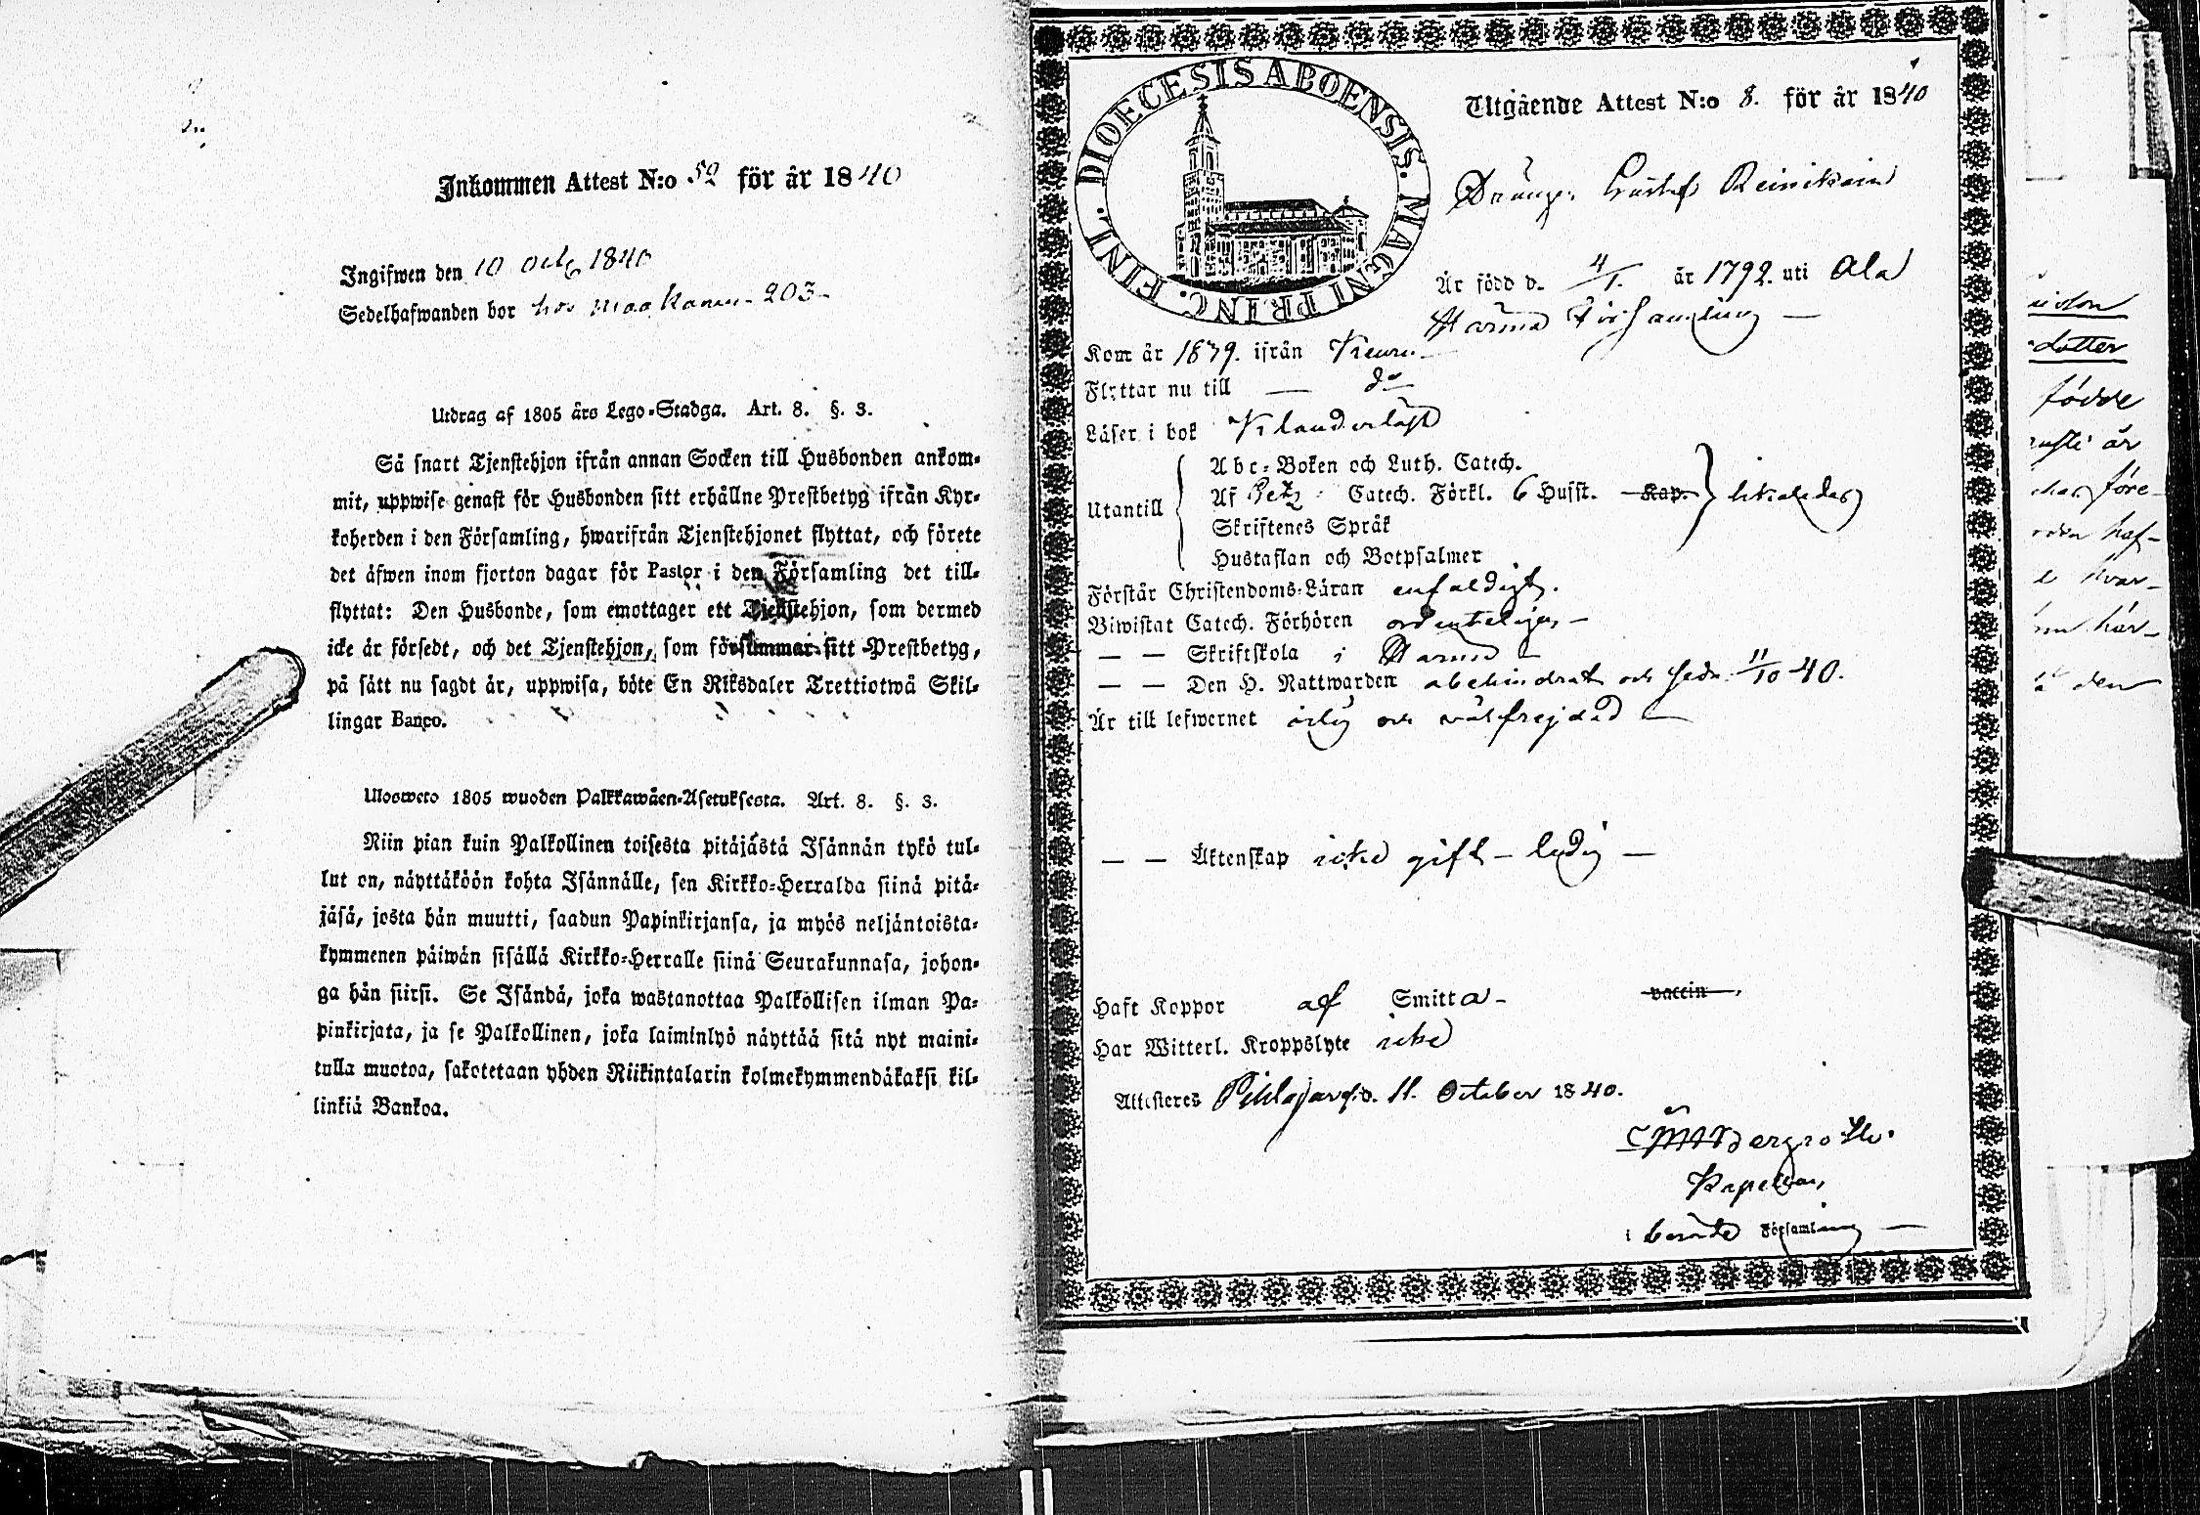 Inkommen Attest N:o 52 för år 1840
Ingifwen den 10 Octb 1840
Sedelhafwanden bor hos 203
Utdrag af 1805 års Lego-Stadga. Art. 8. §. 3.
Så snart Tjenstehjon ifrån annan Socken till Husbonden ankom-
mit, uppwise genast för Husbonden sitt erhållne Prestbetyg ifrån Kyr-
koherden i den Församling, hwarifrån Tjenstehjonet flyttat, och förete
det äfwen inom fjorton dagar för Pastor i den Församling det till-
flyttat: Den Husbonde, som emottager ett Tjenstehjon, som dermed
icke är försedt, och det Tjenstehjon, som försummar sitt Prestbetyg,
på sätt nu sagdt är, uppwisa, böte En Riksdaler Trettiotwå Skil-
lingar Banco.
Ulosweto 1805 wuoden Palkkawäen-Asetuksesta. Art. 8. §. 3.
Niin pian kuin Palkollinen toisesta pitäjästä Isännän tykö tul-
lut on, näyttäköön kohta Isännälle, sen Kirkko-Herralda siinä pitä-
jäsä, josta hän muutti, saadun Papinkirjansa, ja myös neljäntoista-
kymmenen päiwän sisällä Kirkko-Herralle siinä Seurakunnasa, johon-
ga hän siirsi. Se Isändä, joka wastanottaa Palkollisen ilman Pa-
pinkirjata, ja se Palkollinen, joka laiminlyö näyttää sitä nyt maini-
tulla muotoa, sakotetaan yhden Riikintalarin kolmekymmendäkaksi kil-
linkiä Bankoa.
DIOECESIS ABOENSIS. MAGNI PRINC. FINL.
Utgående Attest N:o 8. för år 1840
Dräng. Gustaf Reinikain
Är född d. 4/1. år 1792. uti Ala
Härmä Församling —
Kom år 1839. ifrån Keuru
Flyttar nu till — do
Läser i bok Klanderlöst
Utantill
Abc-Boken och Luth. Catech.
Af Catech. Förkl. 6 Husst. Kap. likaledes
Skriftenes Språk
Hustaflan och Botpsalmer
Förstår Christendoms-Läran enfaldigt.
Biwistat Catech. Förhören ordenteligen —
— — Skriftskola i Härmä
— — Den H. Nattwarden obehindrat och sedn. 11/10 40.
Är till lefwernet ärlig och välfrejdad —
— — Äktenskap icke gift — ledig —
Haft Koppor af Smitta - vaccin
Har Witterl. Kroppslyte icke
Attesteres Pihlajavesi d. 11. October 1840.
Bergroth.
Kapellan,
i berörde Församling —
idon
dotter
födde
år
före-
haf-
hvar-
här-
den